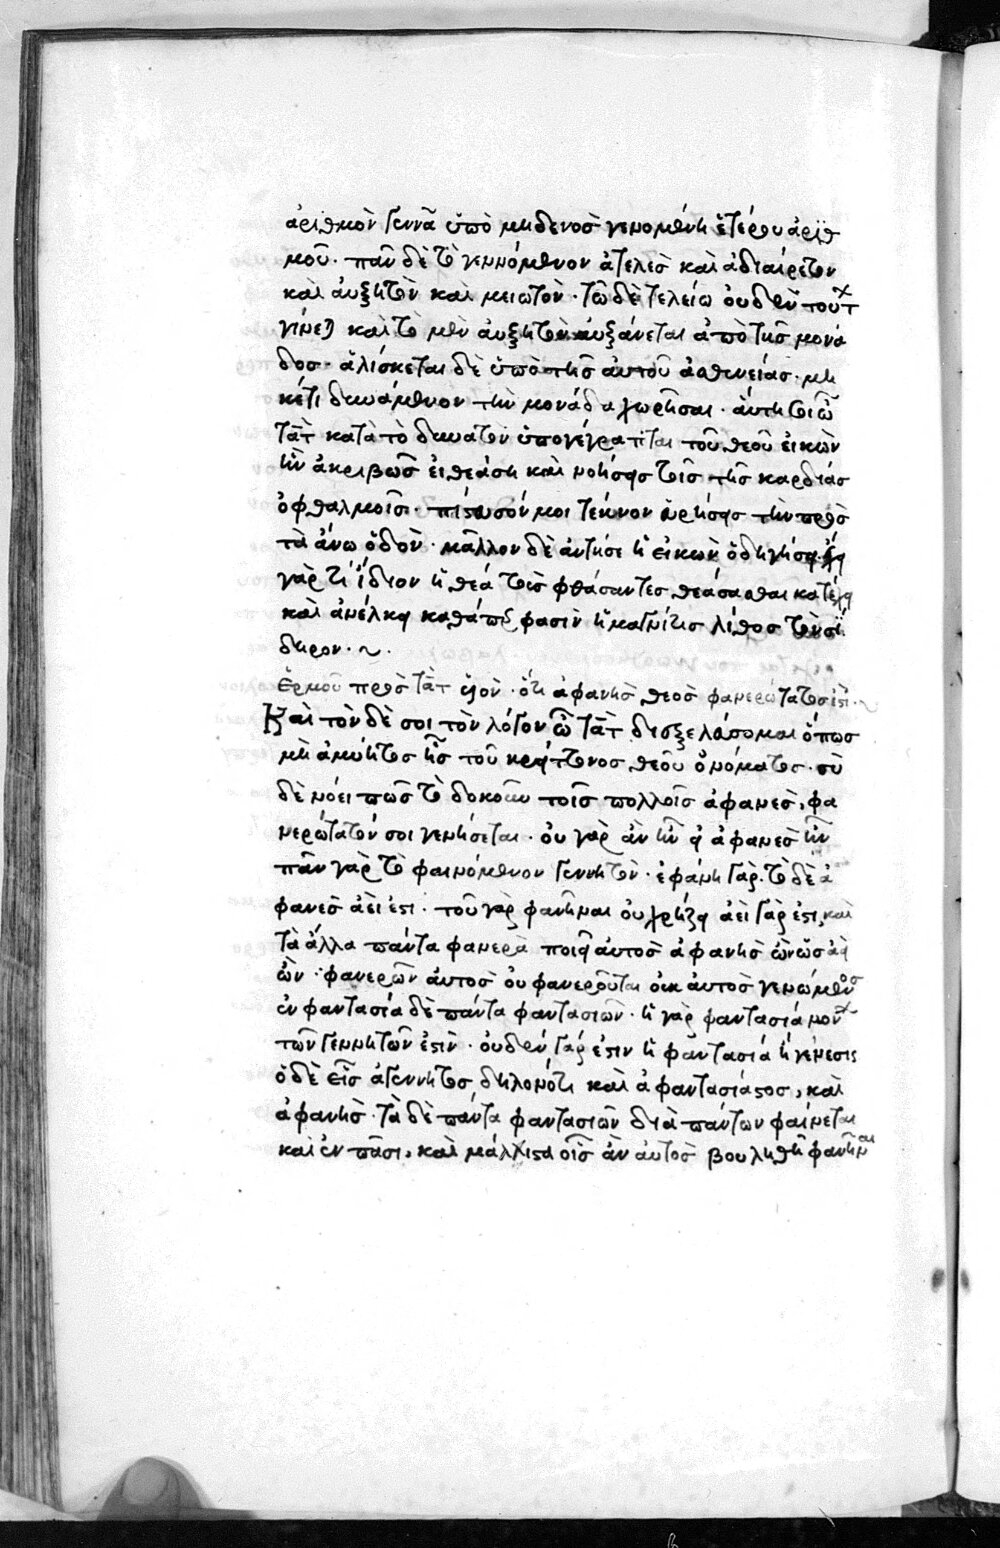 ἀριθμὸν γεννᾶ ὑπὸ μηδενὸσ γενομένη ἑτέρου ἀριθ
μοῦ· πᾶν δὲ τὸ γεννόμενον ἀτελὲσ καὶ ἀδιαίρετον
καὶ ἀυξητὸν καὶ μειωτὸν· τῶ δὲ τελείω ουδὲν τούτ
γίνεται καὶ τὸ μὲν ἀυξητὸν ἀυξάνεται ἀπὸ τῆσ μονά
δοσ· ἁλίσκεται δὲ ὑπὸ τῆσ ἀυτοῦ ἀσθενείασ· μη
κέτι δυνάμενον τὴν μονάδα χωρῆσαι· ἀύτη σοι ὦ
τὰτ κατὰ τὸ δυνατὸν ὑπογέγραπται τοῦ θεοῦ εἰκὼν
ἣν ἀκριβῶσ εἰ θεάση καὶ νοήσησ τοῖσ τῆσ καρδίασ
ὀφθαλμοῖσ· πίστευσόν μοι τέκνον εὑρήσεισ τὴν πρὸσ
τὰ ἄνω ὁδὸν· μᾶλλον δὲ ἀυτήσε ἡ εἰκὼν ὁδηγήσει· ἔχει
γὰρ τί ἴδιον ἡ θέα τοὺσ φθάσαντεσ θεάσασθαι κατέχει
καὶ ἀνέλκει καθάπερ φασὶν ἡ μαγνίτισ λίθοσ τὸν σί
δηρον·~.
Ἑρμοῦ πρὸσ τὰτ υἱὸν· ὅτι ἀφανὴσ θεὸσ φανερώτατόσ ἐστι·~
Καὶ τὸν δὲ σοι τὸν λόγον ὦ τὰτ διεξελεύσομαι ὅπωσ
μὴ ἀμύητοσ ῆσ τοῦ κρείττονοσ θεοῦ ὀνόματοσ· σὺ
δὲ νόει πῶσ τὸ δοκοῦν τοῖσ πολλοῖσ ἀφανὲσ, φα
νερώτατόν σοι γενήσεται· ου γὰρ ἀν ἦν εἰ ἀφανὲσ ἦν
πᾶν γὰρ τὸ φαινόμενον γεννητὸν· ἐφάνη γάρ· τὸ δὲ ἀ
φανὲσ ἀὲι ἐστι· τοῦ γὰρ φανῆναι ου χρήζει ἀεὶ γάρ ἐστι, καὶ
τὰ ἄλλα πάντα φανερὰ ποιεῖ ἀυτὸσ ἀφανὴσ ὢν ὡσ ἀεὶ
ὢν· φανερῶν ἀυτὸσ ου φανεροῦται ουκ ἀυτὸσ γενώμενοσ
ἐν φαντασία δὲ πάντα φαντασιῶν· ἡ γὰρ φαντασία μόν
τῶν γεννητῶν ἐστὶν· ουδὲν γάρ ἐστιν ἡ φαντασία ἢ γένεσισ
ὁ δὲ εἷσ ἀγέννητοσ δηλονότι καὶ ἀφαντασίαστοσ, καὶ
ἀφανὴσ· τὰ δὲ πάντα φαντασιῶν διὰ πάντων φαίνεται
καὶ ἐν πᾶσι, καὶ μάλλιστα οἷσ ἀν ἀυτὸσ βουληθῆ φανῆναι